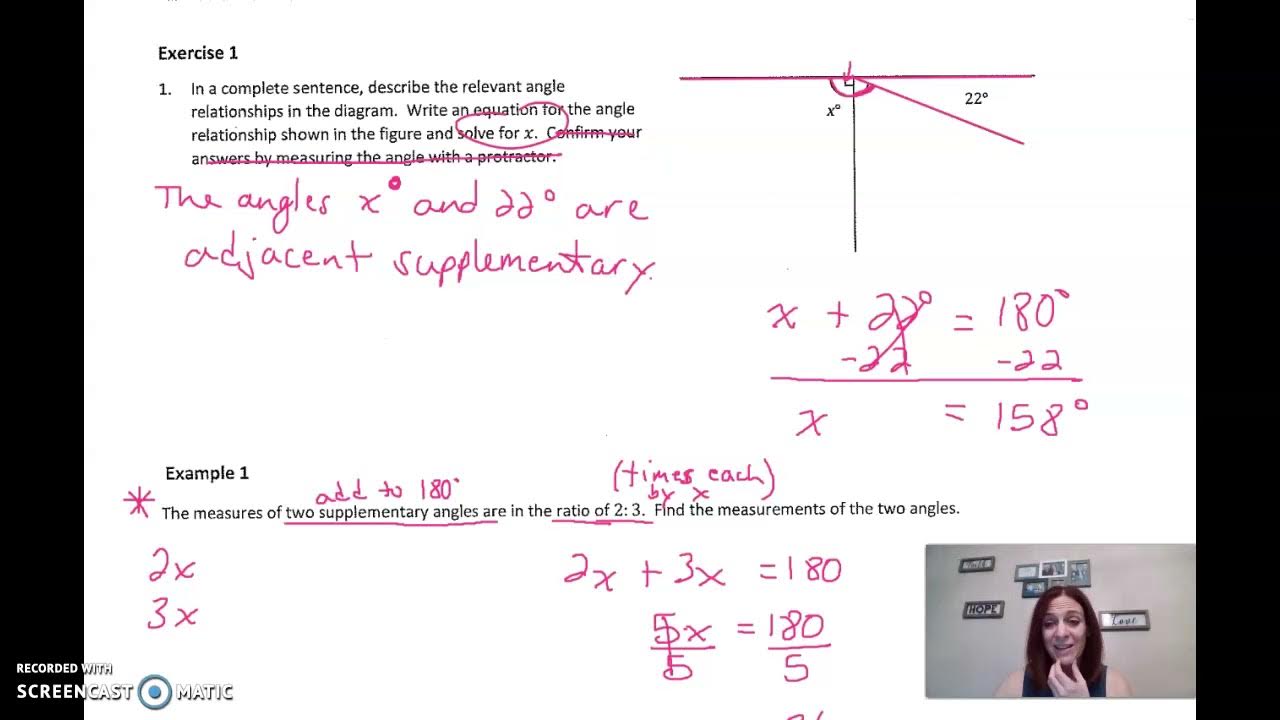 Exercise 1
1. In a complete sentence, describe the relevant angle
relationships in the diagram. Write an equation for the angle
relationship shown in the figure and solve for x. Confirm your
answers by measuring the angle with a protractor.
The angles x° and 22° are
adjacent supplementary.
x°
22°
x + 22° = 180°
-22 -22
x = 158°
Example 1
add to 180°
(times each)
by x
* The measures of two supplementary angles are in the ratio of 2: 3. Find the measurements of the two angles.
2x
3x
2x + 3x = 180
5x = 180
5 5
HOPE
Love
RECORDED WITH
SCREENCAST MATIC